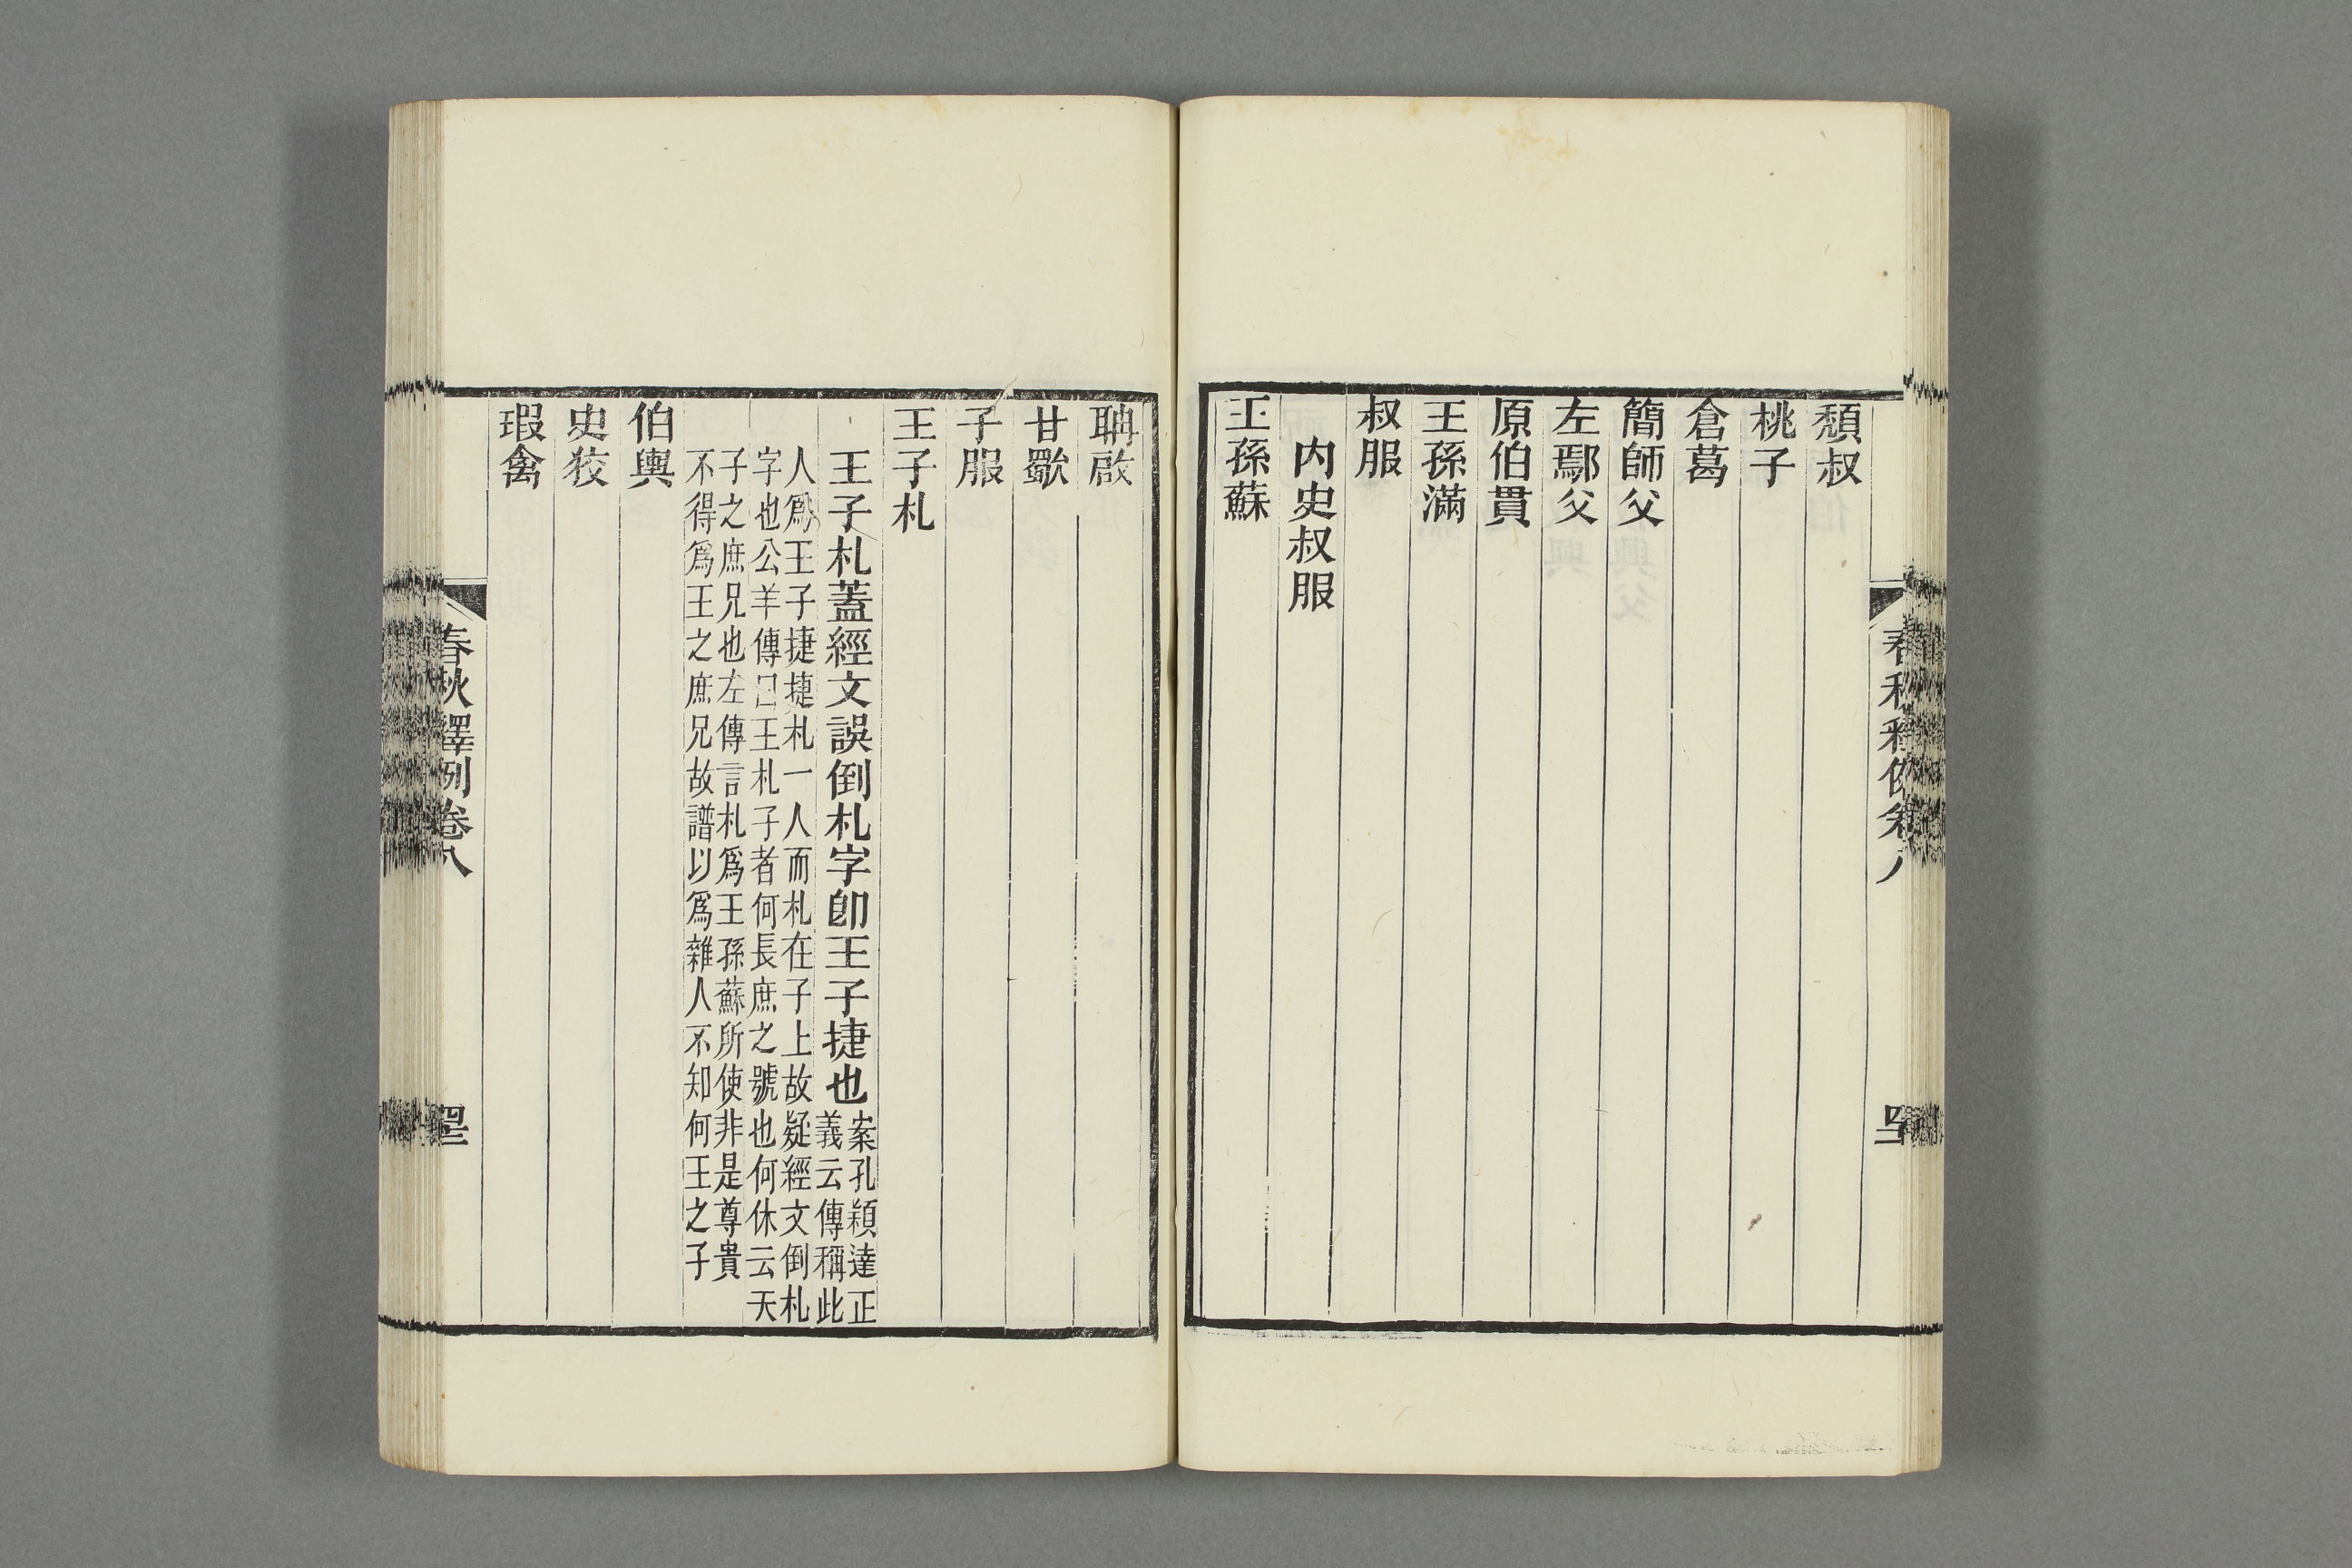 頹叔
桃子
倉葛
簡師父
左鄢父
原伯貫
王孫滿
叔服
内史叔服
王孫蘇
聃啟
甘歜
子服
王子札
王子札蓋經文誤倒札字卽王子捷也案孔穎達正
義云傳稱此
人爲王子捷捷札一人而札在子上故疑經文倒札
字也公羊傳曰王札子者何長庶之號也何休云天
子之庶兄也左傳言札爲王孫蘇所使非是尊貴
不得爲王之庶兄故譜以爲雜人不知何王之子
伯輿
史狡
瑕禽
春秋釋例卷八